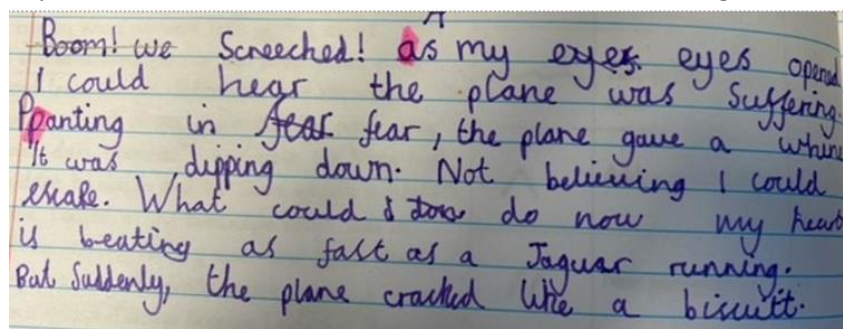 Boom! we Screeched! As my eyes eyes opened
I could hear the plane was Suffering.
Panting in fear fear, the plane gave a whine
It was dipping down. Not believing I could
escape. What could I do now my heart
is beating as fast as a Jaguar running.
But Suddenly, the plane cracked like a biscuitt.